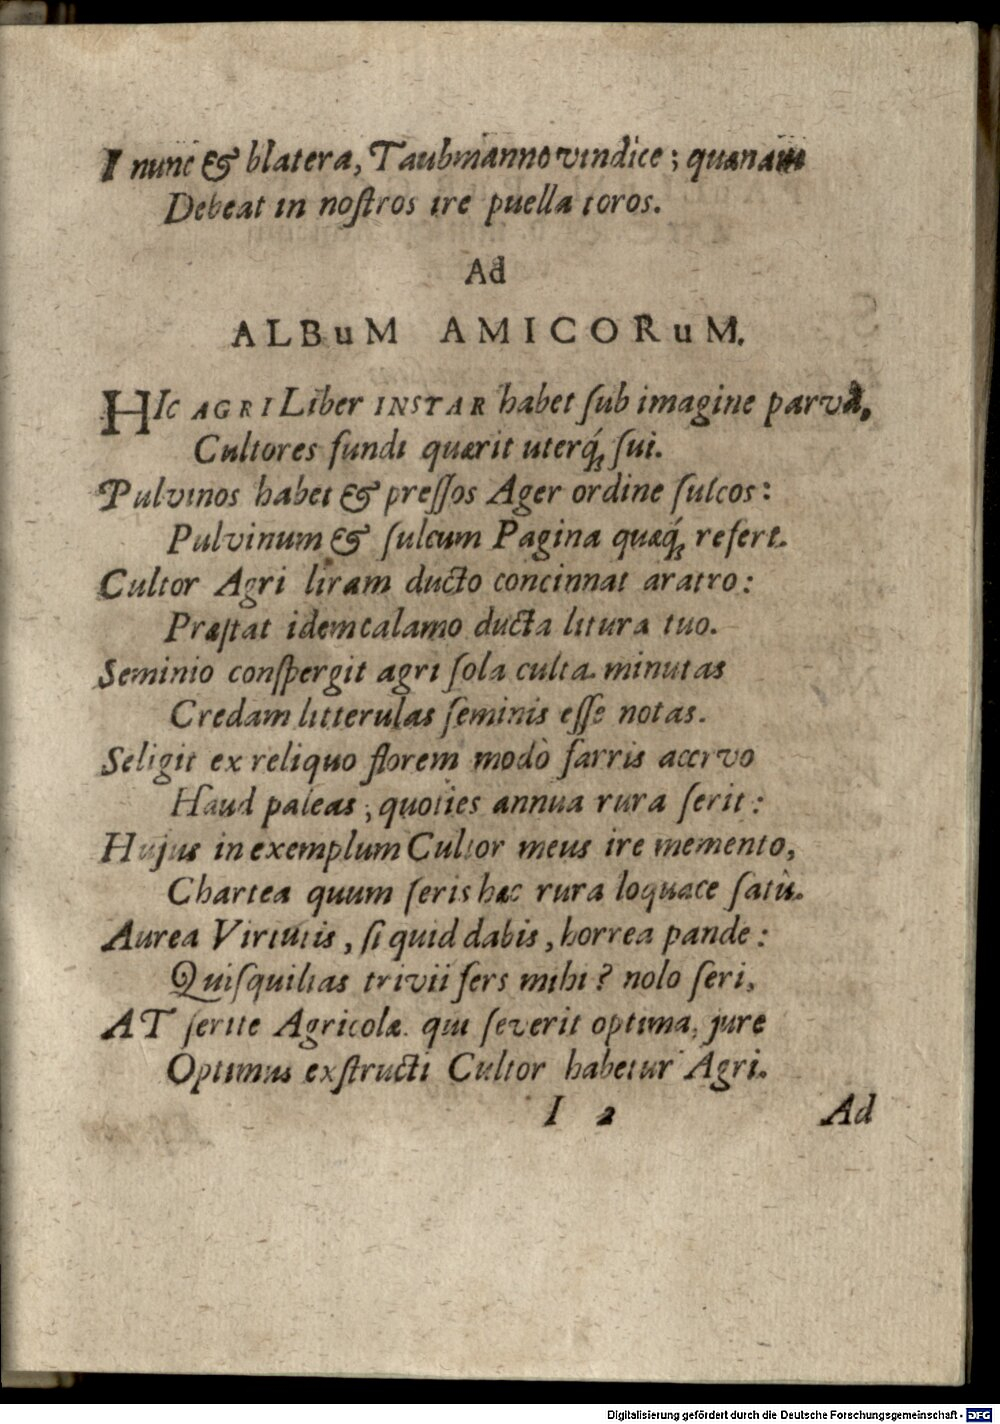 I nunc & blatera, Taubmanno vindice; quanam
Debeat in noſtros ire puella toros.
Ad
ALBuM AMICORuM.
HIc AGRI Liber INSTAR habet ſub imagine parvâ,
Cultores fundi quærit uterq́; ſui.
Pulvinos habet & preſſos Ager ordine ſulcos:
Pulvinum & ſulcum Pagina quæq́; refert.
Cultor Agri liram ducto concinnat aratro:
Præſtat idem calamo ducta litura tuo.
Seminio conſpergit agri ſola culta. minutas
Credam litterulas ſeminis eſſe notas.
Seligit ex reliquo florem modò farris acervo
Haud paleas; quoties annua rura ſerit:
Hujus in exemplum Cultor meus ire memento,
Chartea quum ſeris hæc rura loquace ſatu.
Aurea Virtutis, ſi quid dabis, horrea pande:
Quiſquilias trivii ſers mihi? nolo ſeri,
AT ſerite Agricolæ. qui ſeverit optima, jure
Optimus exſtructi Cultor habetur Agri.
I 2 Ad
Digitalisierung gefördert durch die Deutsche Forschungsgemeinschaft - DFG